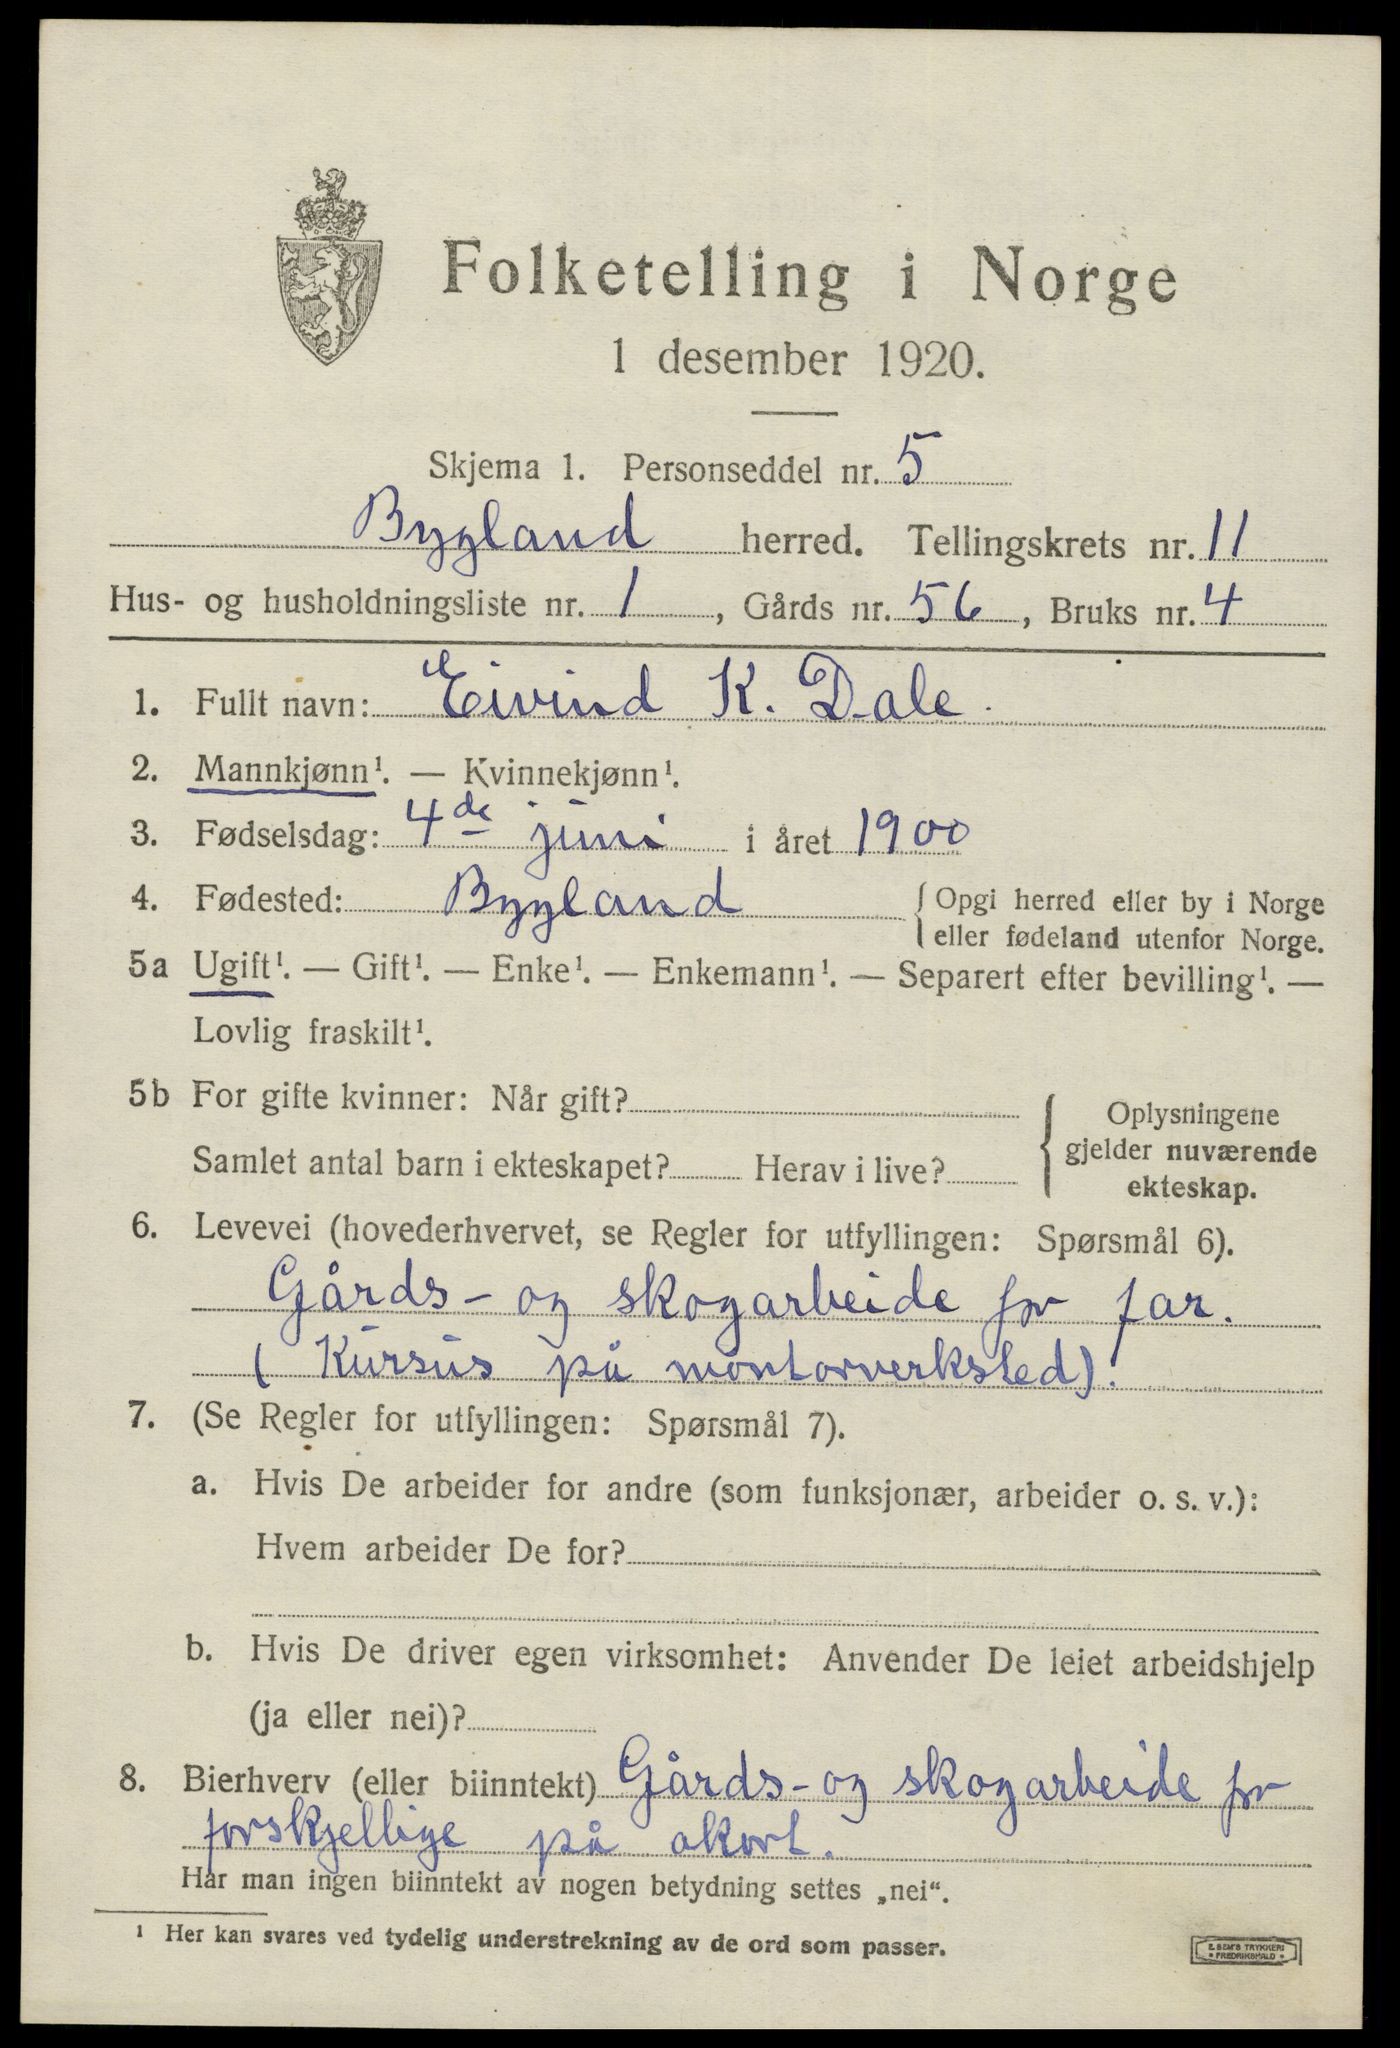 Folketelling i Norge
1 desember 1920.
Skjema 1. Personseddel nr. 5
Bygland herred. Tellingskrets nr. 11
Hus- og husholdningsliste nr. 1, Gårds nr. 56, Bruks nr. 4
1. Fullt navn: Eivind K. Dale.
2. Mannkjønn¹. — Kvinnekjønn¹.
3. Fødselsdag: 4de juni i året 1900
4. Fødested: Bygland { Opgi herred eller by i Norge
eller fødeland utenfor Norge.
5a Ugift¹. — Gift¹. — Enke¹. — Enkemann¹. — Separert efter bevilling¹. —
Lovlig fraskilt¹.
5b For gifte kvinner: Når gift?
Samlet antal barn i ekteskapet? Herav i live?
{ Oplysningene
gjelder nuværende
ekteskap.
6. Levevei (hovederhvervet, se Regler for utfyllingen: Spørsmål 6).
Gårds- og skogarbeide for far.
(Kursus på montorverksted).
7. (Se Regler for utfyllingen: Spørsmål 7).
a. Hvis De arbeider for andre (som funksjonær, arbeider o. s. v.):
Hvem arbeider De for?
b. Hvis De driver egen virksomhet: Anvender De leiet arbeidshjelp
(ja eller nei)?
8. Bierhverv (eller biinntekt) Gårds- og skogarbeide for
forskjellige på akort.
Har man ingen biinntekt av nogen betydning settes „nei“.
¹ Her kan svares ved tydelig understrekning av de ord som passer.
E. SEM'S TRYKKERI
FREDRIKSHALD